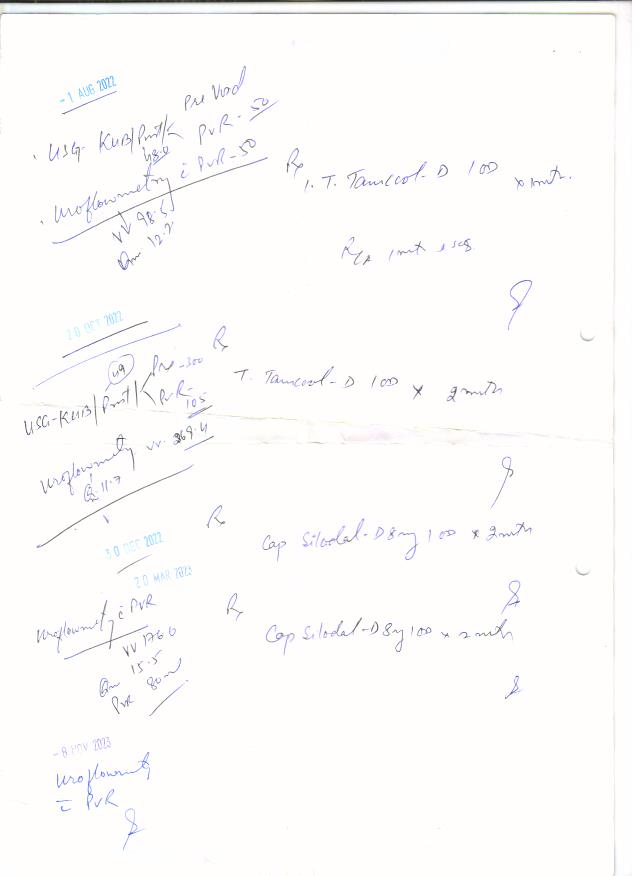 -1 AUG 2022
USG-KUB/Prost/< Pre Void
PVR-50
48.2
Uroflowmetry c̄ PVR-50
VV 98.5
Qm 12.2
Rx
1. T. Tamcool-D 100 x 1mth.
20 OCT 2022
USG-KUB/Prost/< Pre-300
49
PVR-105
Rx
T. Tamcool-D 100 x 2mth
Uroflowmetry VV. 369.4
Q 11.7
30 DEC 2022
Rx
Cap Silodal-D 8mg 100 x 2mth
20 MAR 2023
Uroflowmetry c̄ PVR
VV 176.0
Qm 15.5
PVR 80ml
Rx
Cap Silodal-D 8mg 100 x 2mth
-8 NOV 2023
Uroflowmetry
c̄ PVR